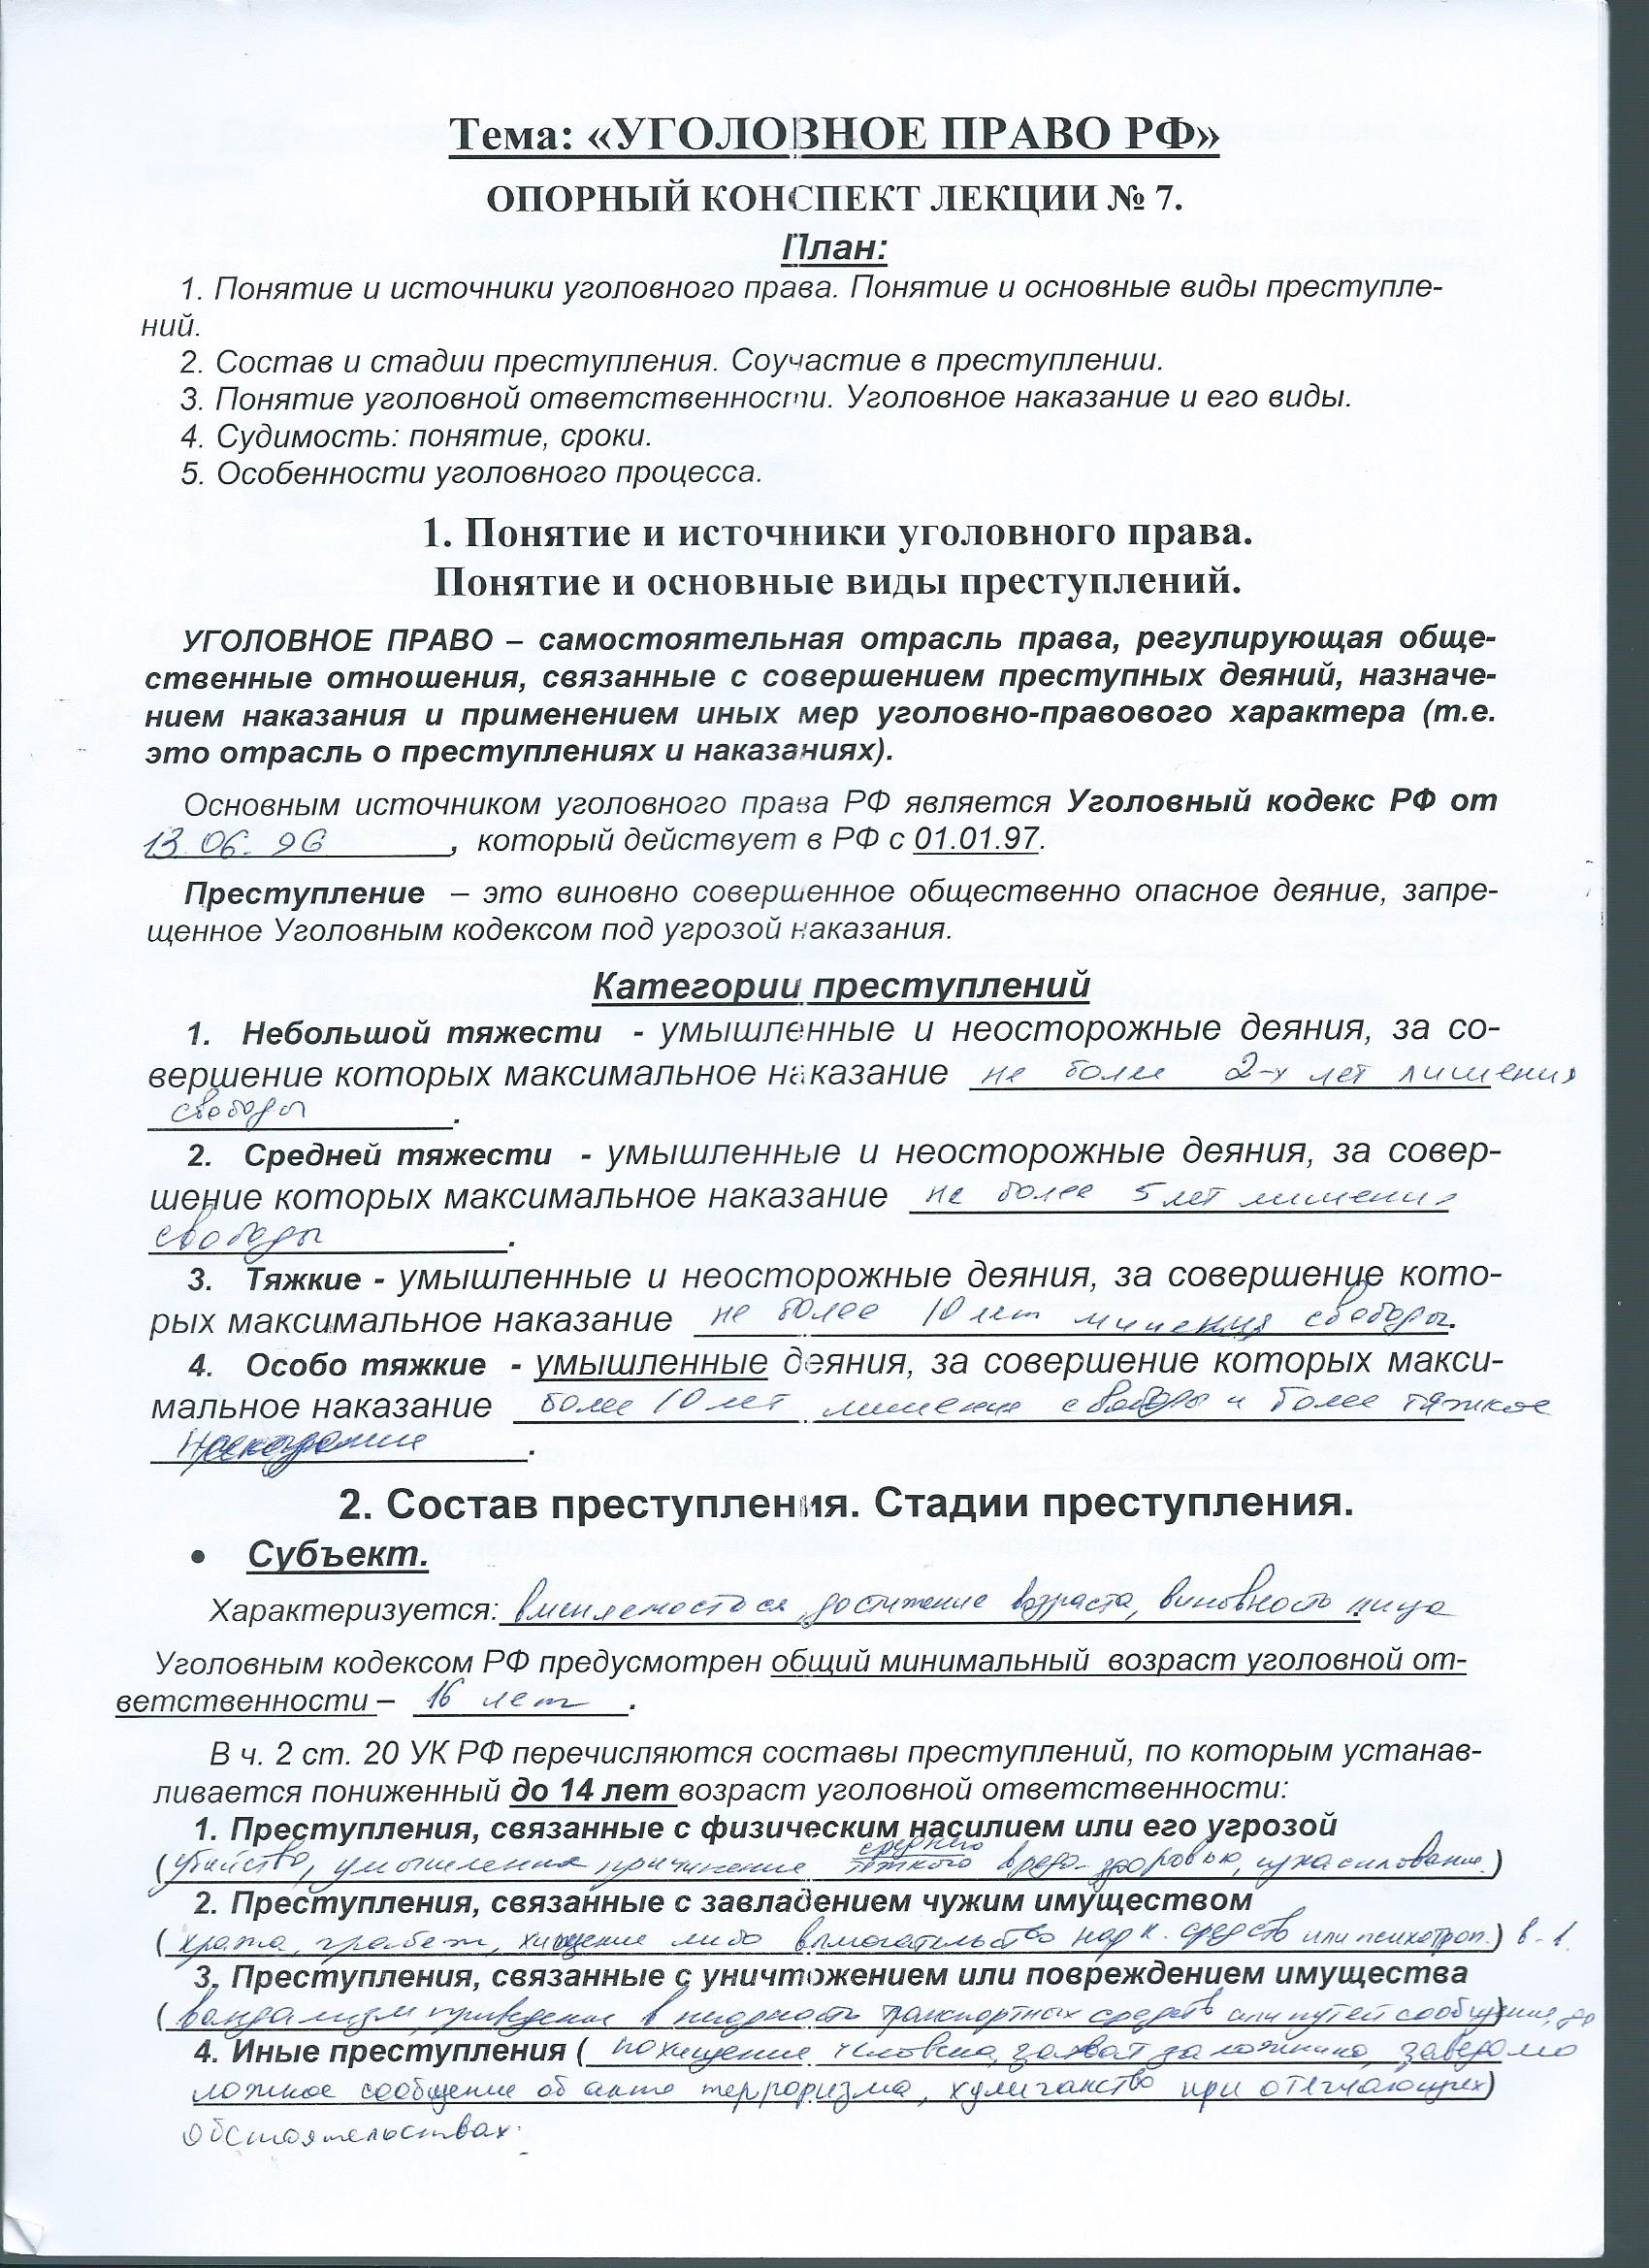 Тема: «УГОЛОВНОЕ ПРАВО РФ»
ОПОРНЫЙ КОНСПЕКТ ЛЕКЦИИ № 7.
План:
1. Понятие и источники уголовного права. Понятие и основные виды преступле-
ний.
2. Состав и стадии преступления. Соучастие в преступлении.
3. Понятие уголовной ответственности. Уголовное наказание и его виды.
4. Судимость: понятие, сроки.
5. Особенности уголовного процесса.
1. Понятие и источники уголовного права.
Понятие и основные виды преступлений.
УГОЛОВНОЕ ПРАВО – самостоятельная отрасль права, регулирующая обще-
ственные отношения, связанные с совершением преступных деяний, назначе-
нием наказания и применением иных мер уголовно-правового характера (т.е.
это отрасль о преступлениях и наказаниях).
Основным источником уголовного права РФ является Уголовный кодекс РФ от
13.06.96, который действует в РФ с 01.01.97.
Преступление – это виновно совершенное общественно опасное деяние, запре-
щенное Уголовным кодексом под угрозой наказания.
Категории преступлений
1. Небольшой тяжести - умышленные и неосторожные деяния, за со-
вершение которых максимальное наказание не более 2-х лет лишения
свободы.
2. Средней тяжести - умышленные и неосторожные деяния, за совер-
шение которых максимальное наказание не более 5 лет лишения
свободы.
3. Тяжкие - умышленные и неосторожные деяния, за совершение кото-
рых максимальное наказание не более 10 лет лишения свободы.
4. Особо тяжкие - умышленные деяния, за совершение которых макси-
мальное наказание более 10 лет лишения свободы и более тяжкое
наказание.
2. Состав преступления. Стадии преступления.
• Субъект.
Характеризуется: вменяемостью, достижение возраста, виновность лица
Уголовным кодексом РФ предусмотрен общий минимальный возраст уголовной от-
ветственности – 16 лет.
В ч. 2 ст. 20 УК РФ перечисляются составы преступлений, по которым устанав-
ливается пониженный до 14 лет возраст уголовной ответственности:
1. Преступления, связанные с физическим насилием или его угрозой
среднего
(убийство, умышления причинение тяжкого вреда здоровью, изнасилование.)
2. Преступления, связанные с завладением чужим имуществом
(кража, грабеж, хищение либо вымогательство нарк. средств или психотроп.) в-в.
3. Преступления, связанные с уничтожением или повреждением имущества
(вандализм, приведение в негодность транспортных средств или путей сообщения,)
4. Иные преступления (похищение человека, захват заложника, заведомо
ложное сообщение об акте терроризма, хулиганство при отягчающих)
обстоятельствах.